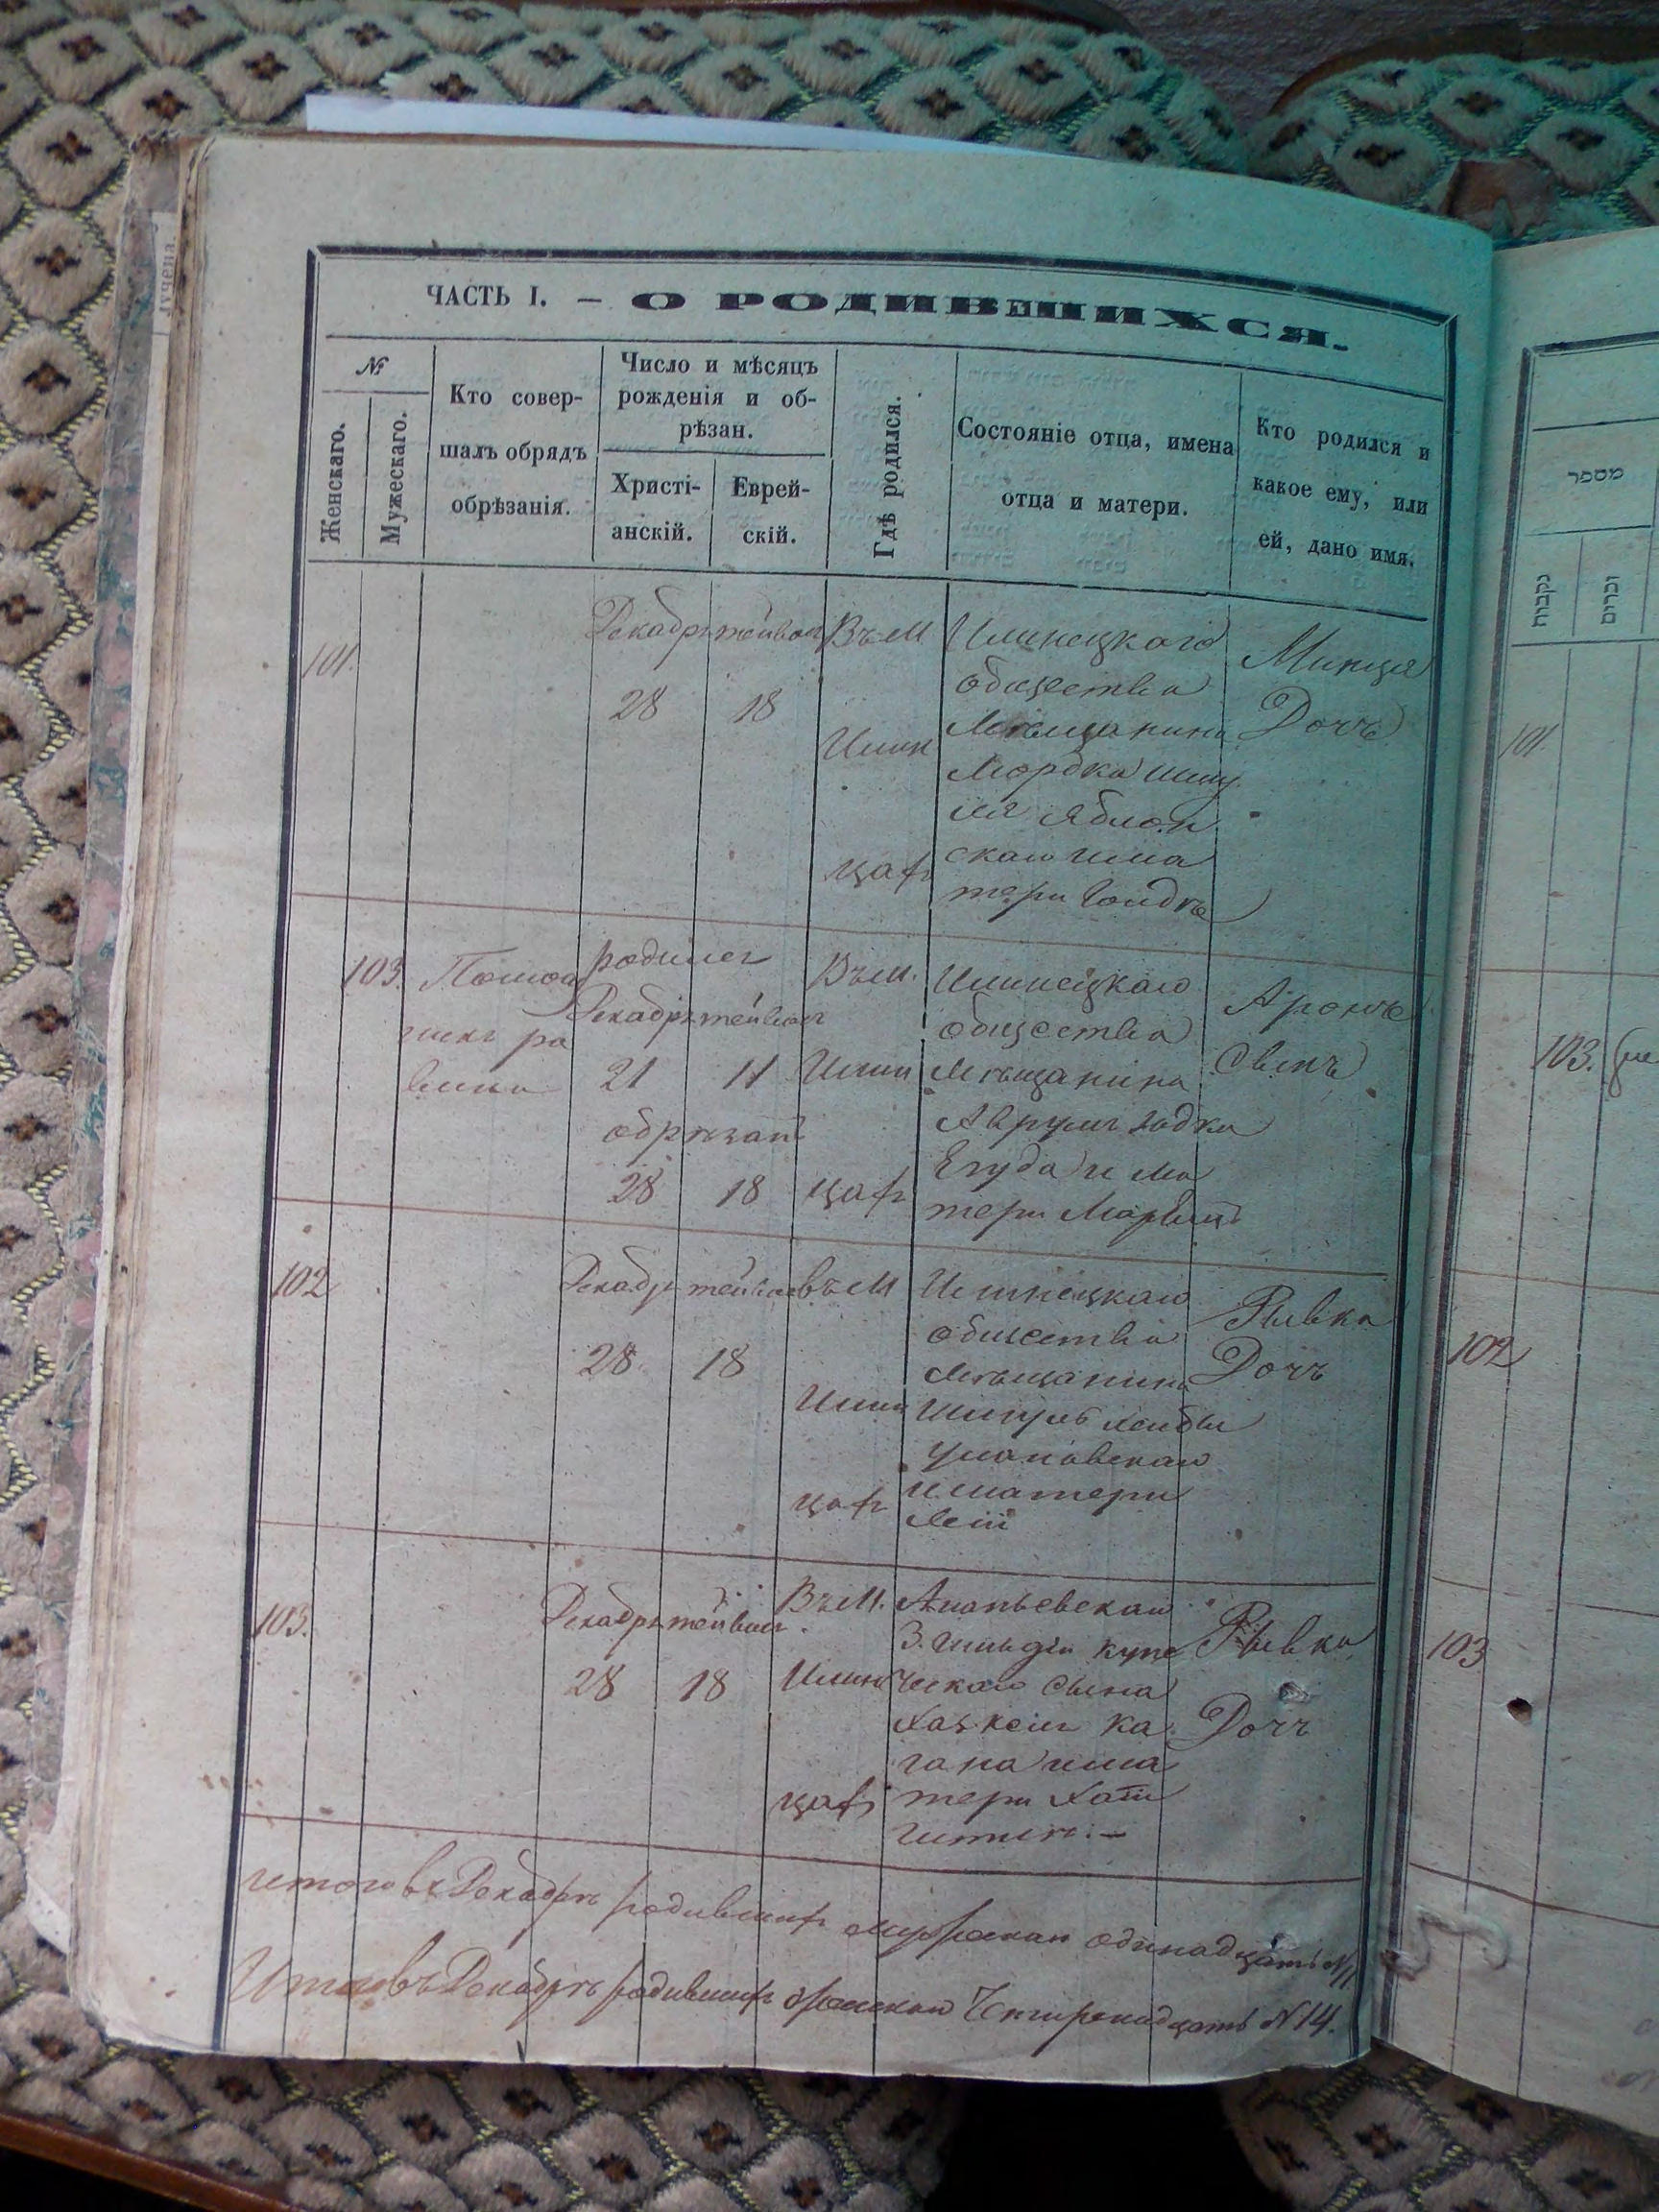 лучена.
ЧАСТЬ I. — О РОДИВШИХСЯ.
№
Женскаго.
Мужескаго.
Кто совер-
шалъ обрядъ
обрѣзанія.
Число и мѣсяцъ
рожденія и об-
рѣзан.
Христі-
анскій.
Еврей-
скій.
Гдѣ родился.
Состояніе отца, имена
отца и матери.
Кто родился и
какое ему, или
ей, дано имя.
101.
Декабрь
28
18
Въ м
Илин
цахъ
Илинецкаго
общества
Мѣщанина
Мордка Шму
ля Яблон
скаго и ма
тери Голдъ
Минця
Дочь
103.
Помощ
никъ ра
вина
родился
Декабрь
21
11
обрѣзанъ
28
18
Въ м.
Илин
цахъ
Илинецкаго
общества
Мѣщанина
Аврумъ Юдка
Егуда и ма
тери
Аронъ
Сынъ
102
Декабрь
28
18
въ м
Илин
цахъ
Илинецкаго
общества
Мѣщанина
Шмуль Лейбы
Умановскаго
и матери
Леи
Рывка
Дочь
103.
Декабрь
28
18
Въ м.
Илин
цахъ
Ананьевскаго
3. гильдіи купе
ческаго сына
Хаскель Ка
гана и ма
тери
Рывка
Дочь
итого въ Декабрѣ родившихъ мужескаго одинадцать №11.
Итого въ Декабрѣ родившихъ женскаго Четыренадцать №14.
מספר
נקבות
זכרים
101.
103.
102
103